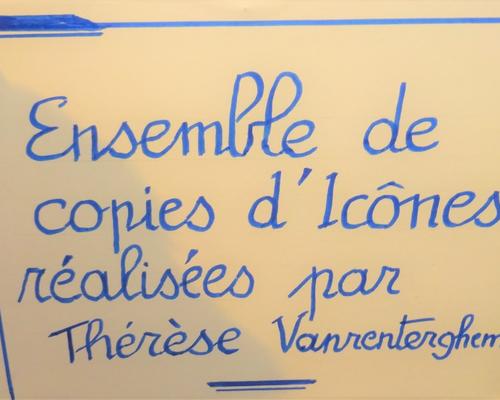 Ensemble de
copies d'Icônes
réalisées par
Thérèse Vanrenterghem